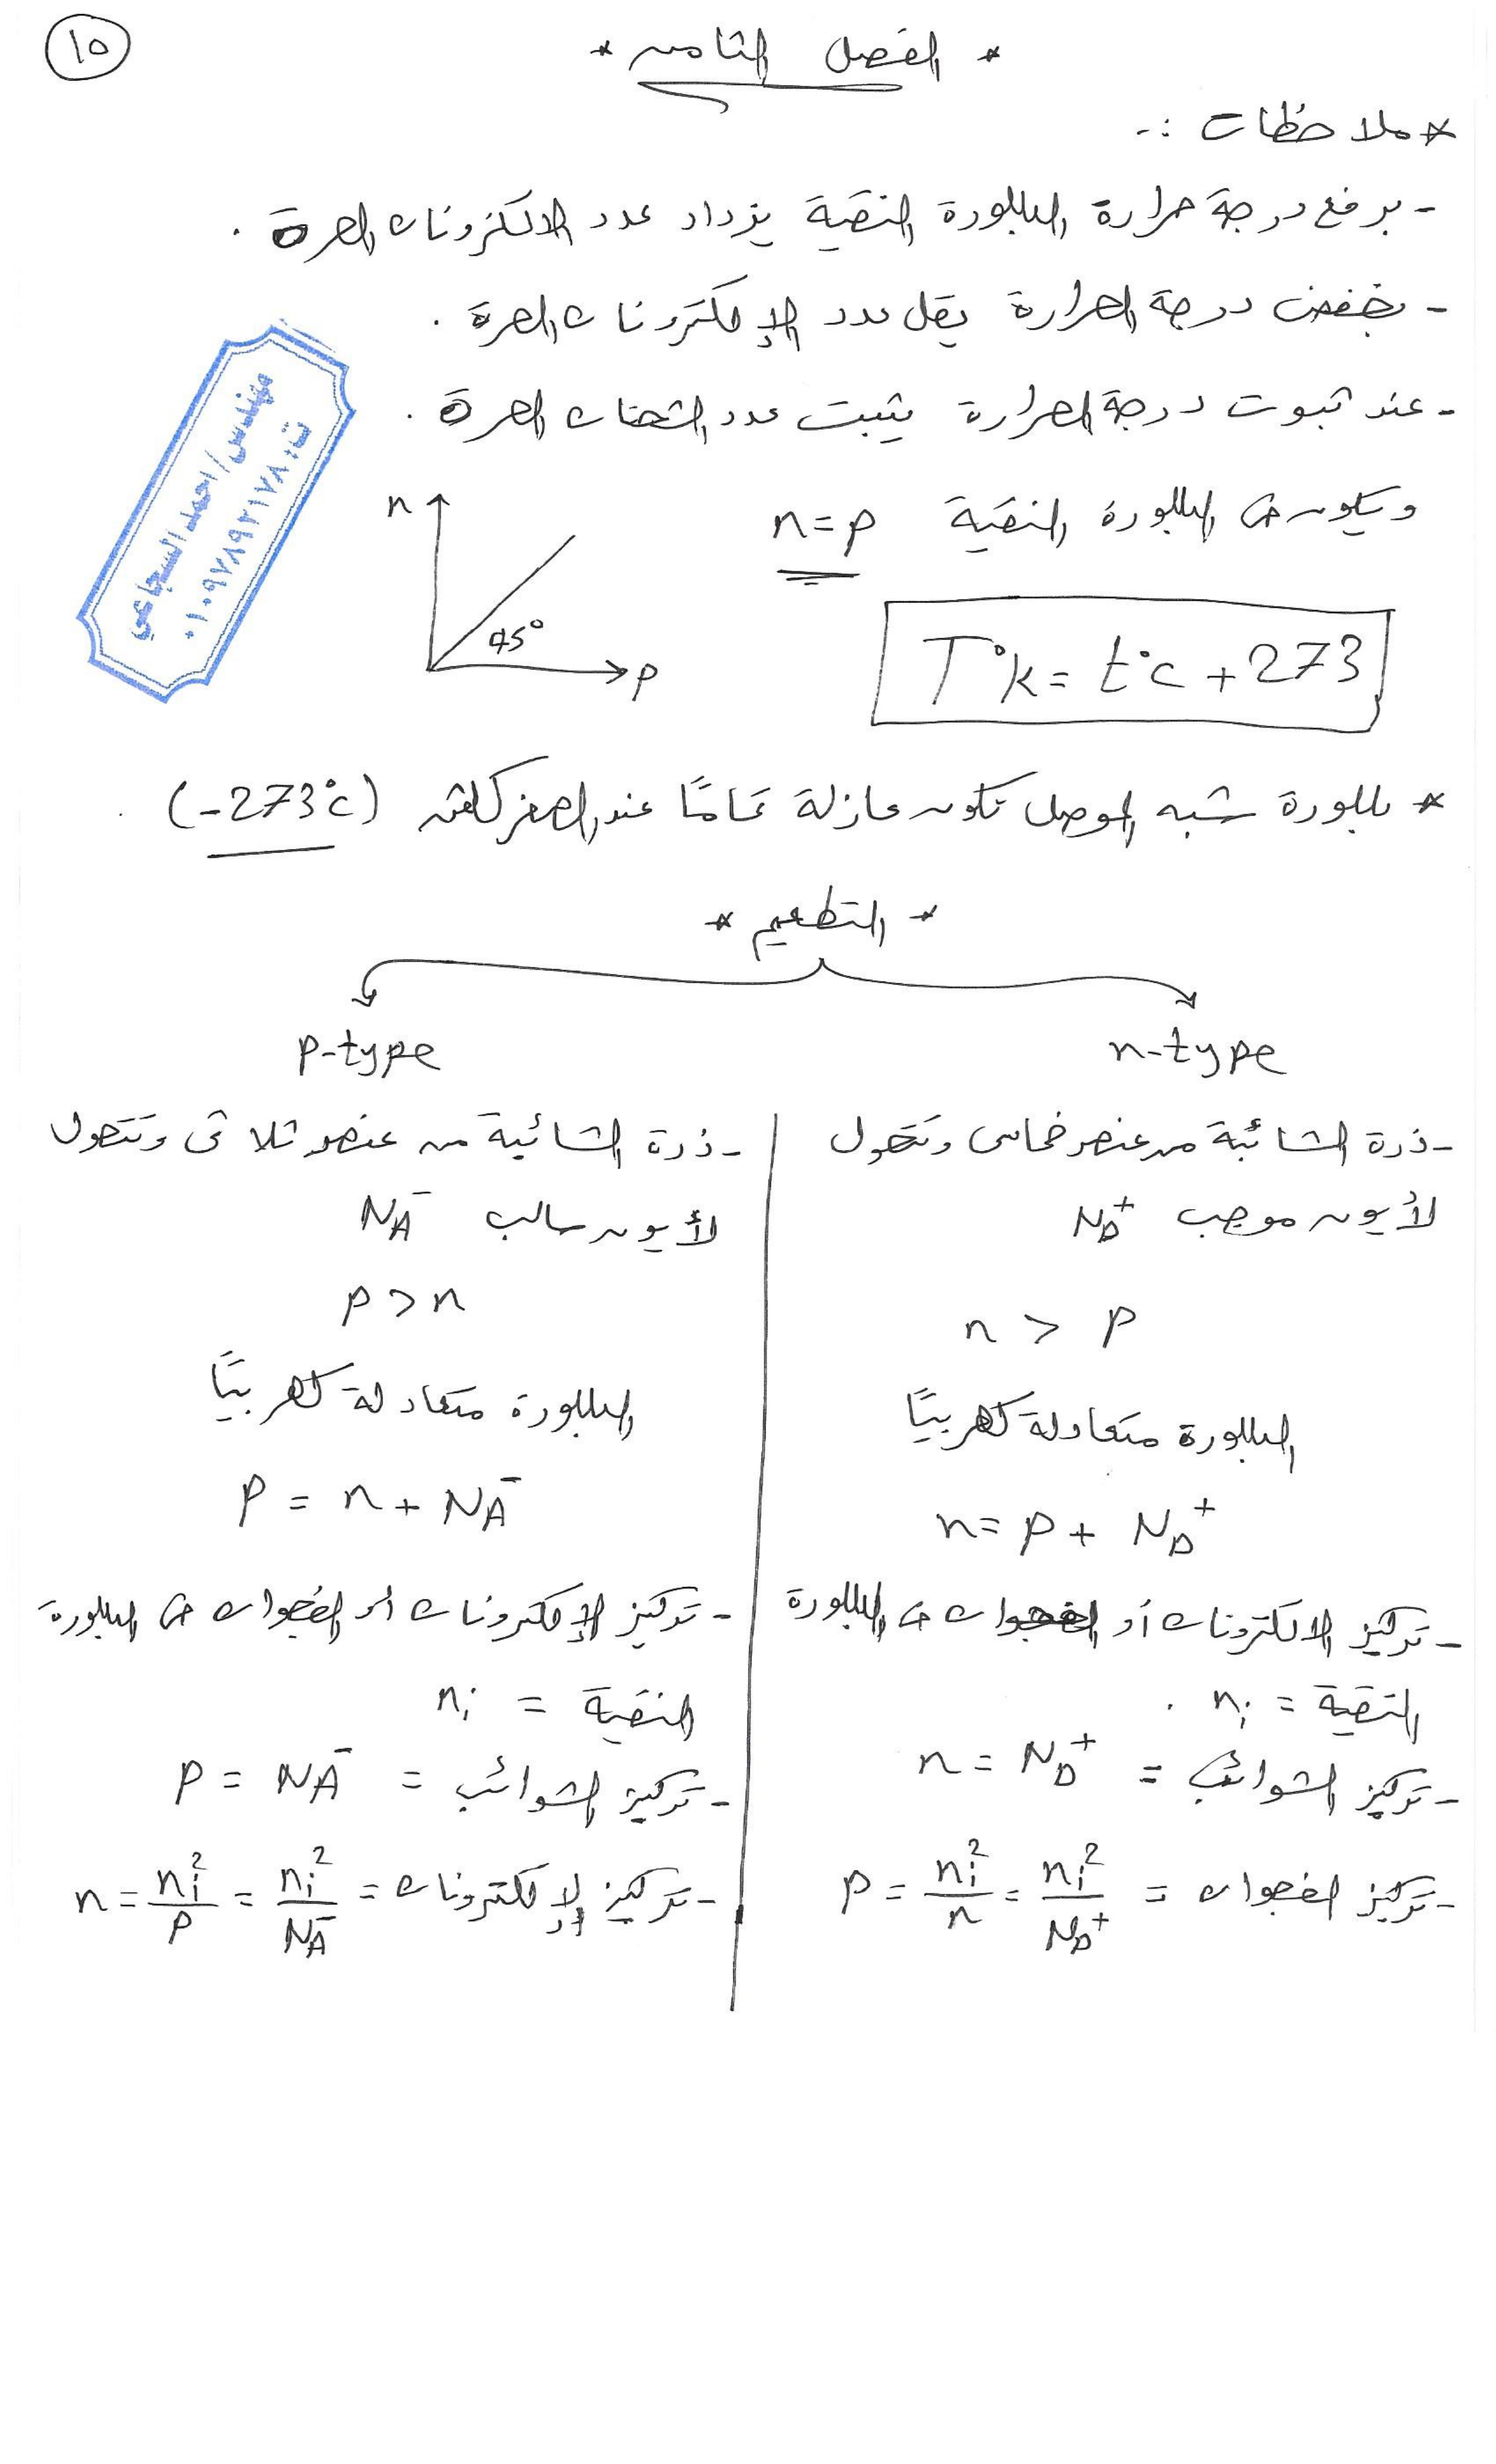 ١٥
* الفصل الثامن *
* ملاحظات :-
- برفع درجة حرارة البللورة النقية يزداد عدد الالكترونات الحرة .
- بخفض درجة الحرارة يقل عدد الإلكترونات الحرة .
- عند ثبوت درجة الحرارة يثبت عدد الشحنات الحرة .
ويكون فى البللورة النقية n = p
n
45°
p
T°k = t°c + 273
مهندس/احمد السجاعي
ت: ٠١٠٩٧٨٩٢١٧٨
* بللورة شبه الموصل تكون عازلة تمامًا عند الصفر كلفن (-273°c) .
* التطعيم *
n-type
- ذرة الشائبة من عنصر خماسى وتتحول
لأيون موجب N_D⁺
n > p
البللورة متعادلة كهربيًا
n = p + N_D⁺
- تركيز الالكترونات أو الفجوات فى البللورة
النقية = nᵢ .
- تركيز الشوائب = n = N_D⁺
- تركيز الفجوات = p = nᵢ²/n = nᵢ²/N_D⁺
p-type
- ذرة الشائبة من عنصر ثلاثى وتتحول
لأيون سالب N_A⁻
p > n
البللورة متعادلة كهربيًا
p = n + N_A⁻
- تركيز الإلكترونات أو الفجوات فى البللورة
النقية = nᵢ
- تركيز الشوائب = p = N_A⁻
- تركيز الإلكترونات = n = nᵢ²/p = nᵢ²/N_A⁻